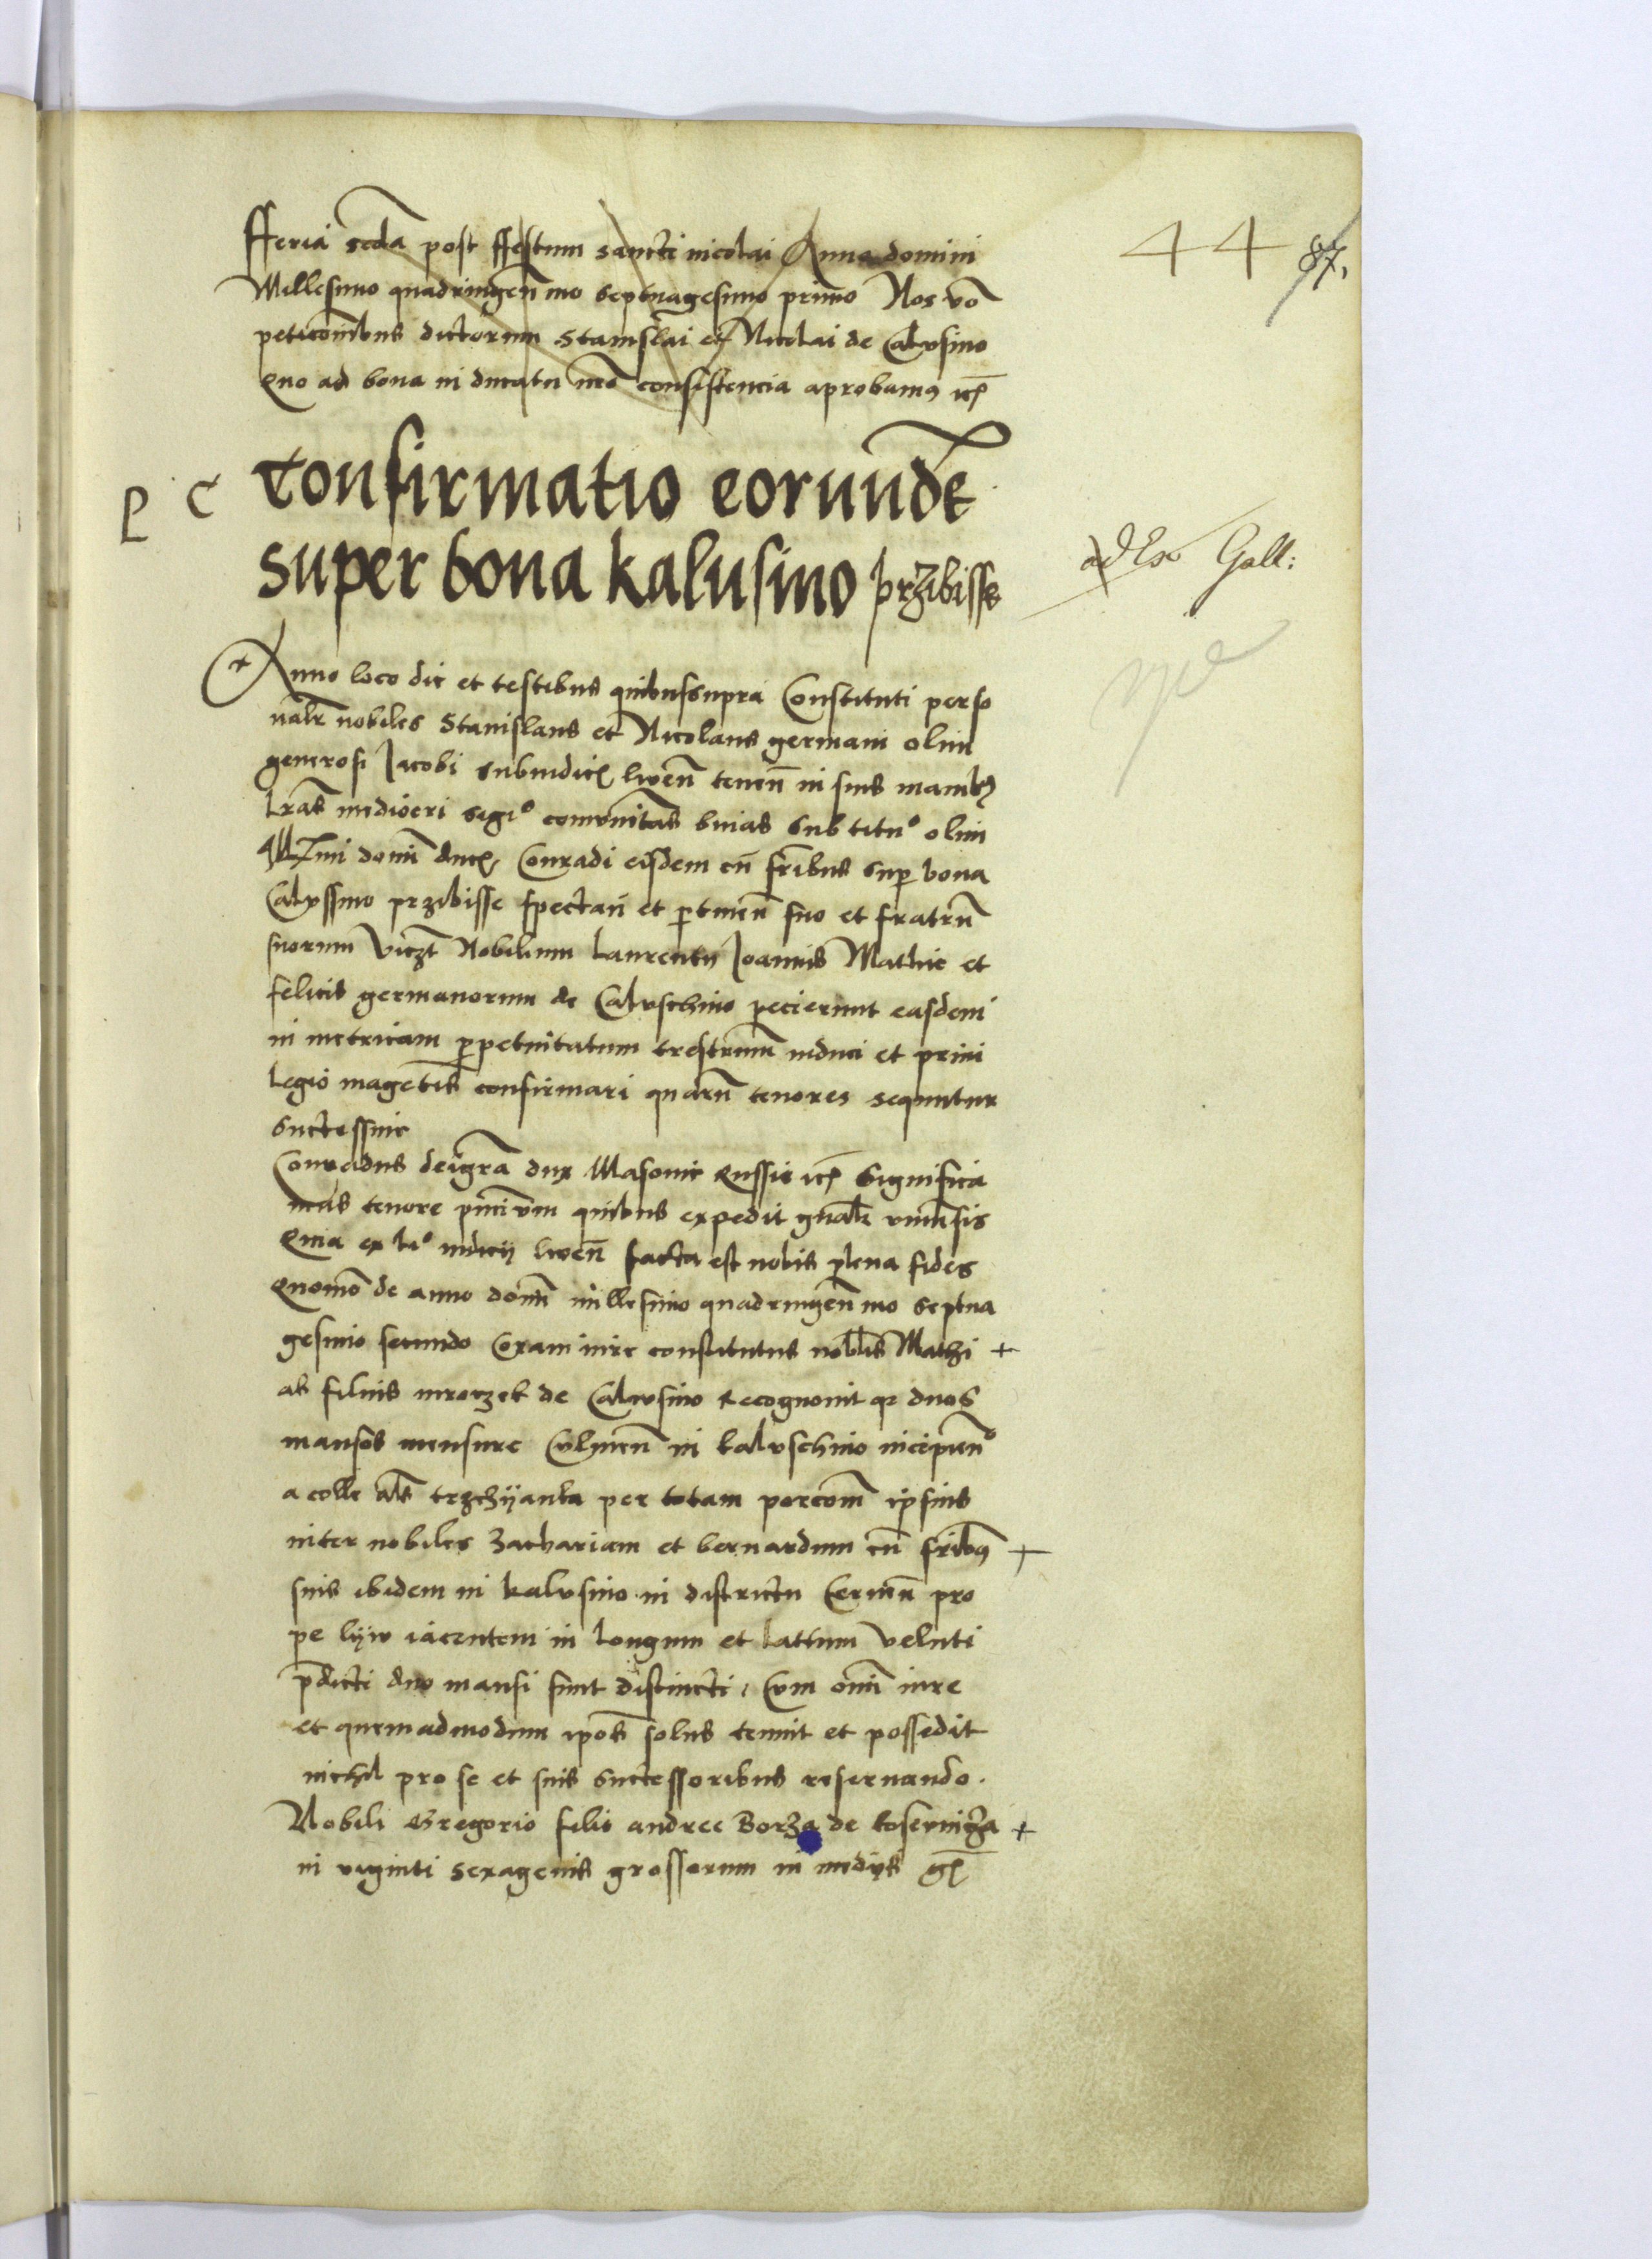 44 87,
fferia scda post ffestum sancti nicolai Anno domini
Millesimo quadringen mo septuagesimo primo Nos vo
peticionibus dictorum Stanislai et Nicolai de Calvsino
Quo ad bona in ducatu nro consistencia aprobamus etc
P C Confirmatio eorunde
super bona kalusino przibisse
Gall:
Anno loco die et testibus quibussupra Constituti perso
nalr nobiles Stanislaus et Nicolaus germani olim
generosi Jacobi subiudicis liwen tenen in suis manibus
lras mediocri sigio comunitas huius sub titulo olim
Illmi domi ducis Conradi eisdem cu fribus sup bona
Calvssino przibisse spectan et ptinen suo et fratru
suorum viczt Nobilium Laurentii Joannis Mathie et
felicis germanorum de Calvschino pecierunt easdem
in metricam ppetuitatum trestrium induci et priui
legio magetis confirmari quaru tenores sequuntur
successiue
Conradus deigra dux Masouie Russie etc Significa
mus tenore pncium quibus expedit gnalr vniusis
Quia ex lio iudicii liwen facta est nobis plena fides
Quomo de anno domi millesimo quadringen mo septua
gesimo secundo Coram iure constitutus nobilis Mathi +
as filius mroczek de Calvsino Recognouit qz duos
mansos mensure Culmen in kalvschino incipien
a colle als trzchijanka per totam porcom ipsius
inter nobiles Zachariam et bernardum cu fribus +
suis ibidem in kalvsino in districtu Cernen pro
pe lijw iacentem in longum et lattum veluti
pdicti duo mansi sunt distincti, Cum omi iure
et quemadmodum ipos solus tenuit et possedit
nichil pro se et suis successoribus reseruando.
Nobili Gregorio filio andree Borza de koseuicza +
in viginti sexagenis grossorum in medijs gs